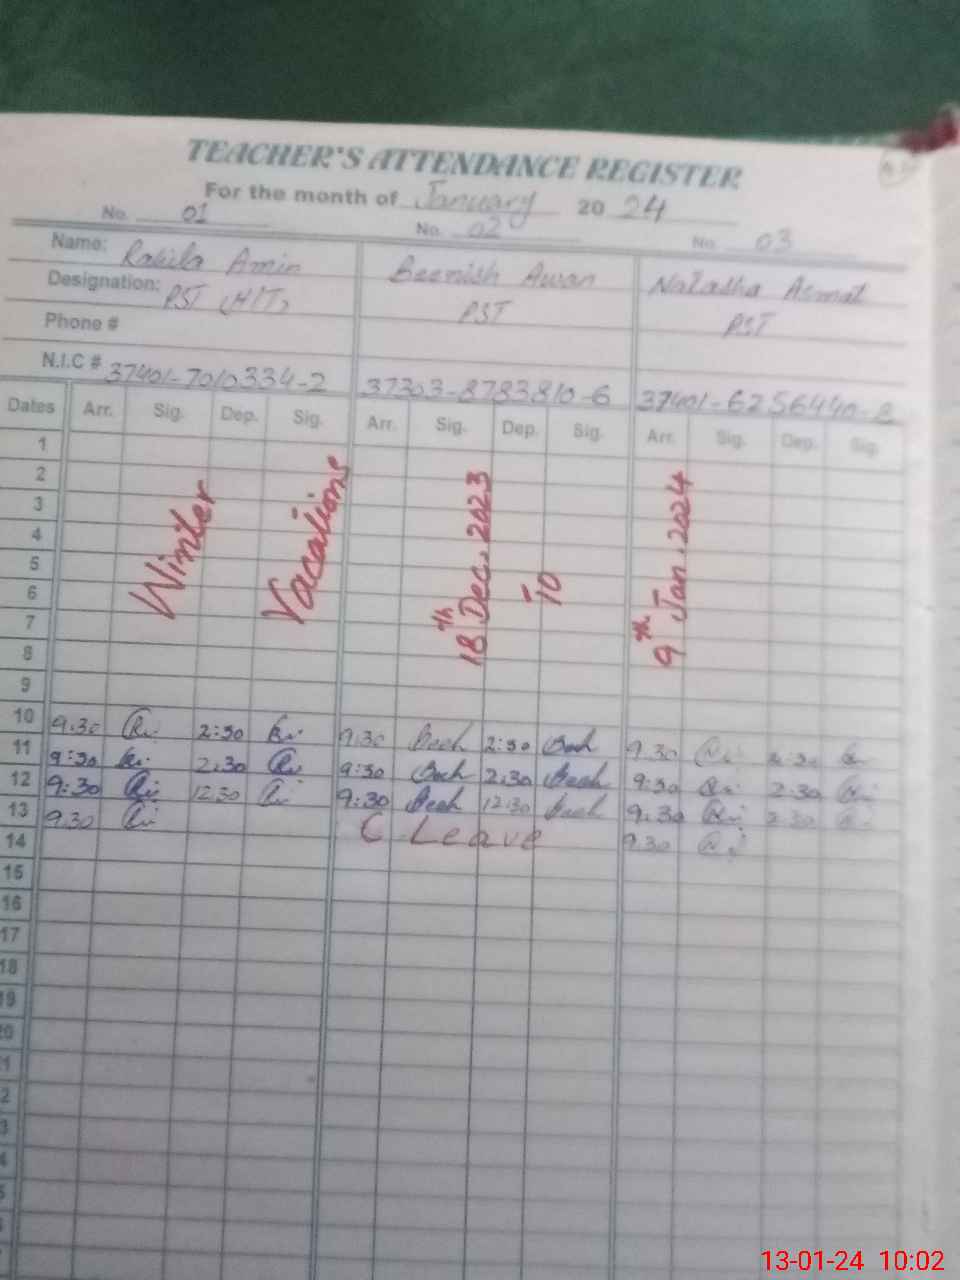 TEACHER'S ATTENDANCE REGISTER
For the month of January 2024
No. 01 No. 02 No. 03
Name: Rahila Amin Beenish Awan Natasha Asmat
Designation: PST (HT) PST PST
Phone #
N.I.C # 37401-7010334-2 37303-8783810-6 37401-6256440-8
Dates Arr. Sig. Dep. Sig. Arr. Sig. Dep. Sig. Arr. Sig. Dep. Sig.
1
2
3
4
5
6
7
8
9
Winter Vacations 18th Dec. 2023 To 9th Jan. 2024
10 9.30 2:30 9.30 2:30 9.30 2:30
11 9:30 2.30 9:30 2.30 9:30 2.30
12 9:30 12.30 9:30 12.30 9.30 2.30
13 9.30 C Leave 9.30
14
15
16
17
18
19
20
21
22
23
24
25
13-01-24 10:02